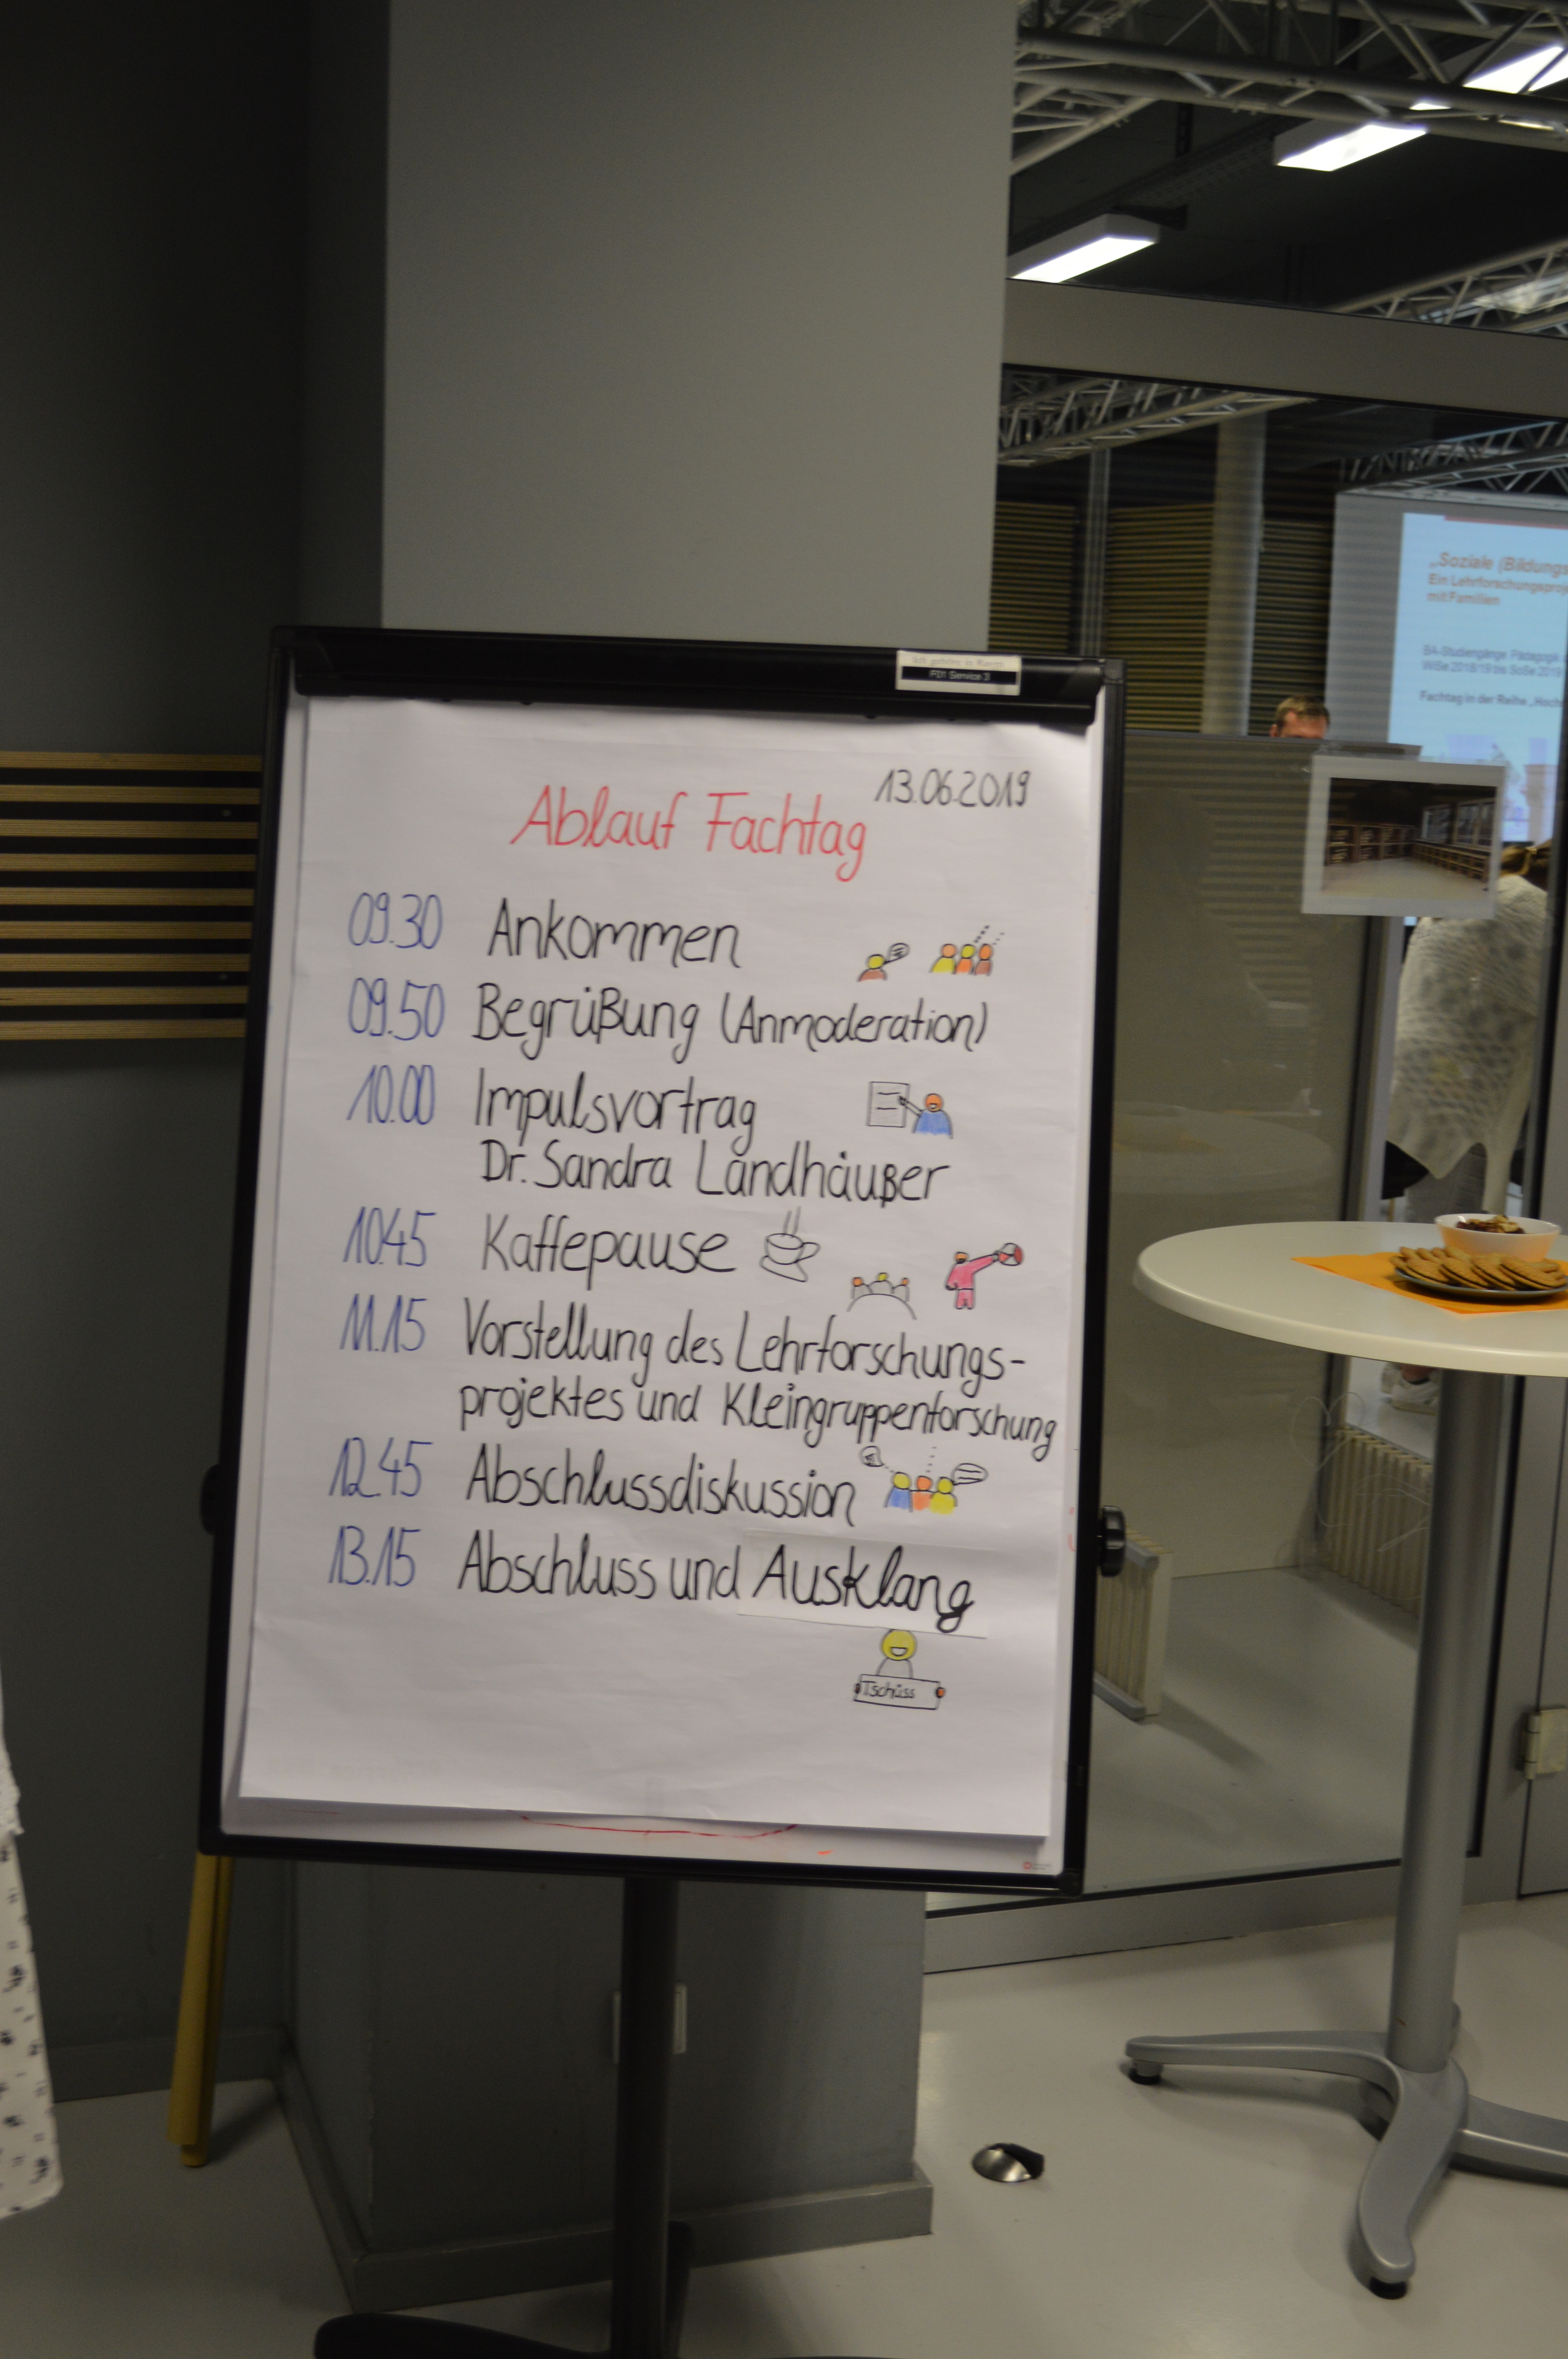 13.06.2019
Ablauf Fachtag
09.30 Ankommen
09.50 Begrüßung (Anmoderation)
10.00 Impulsvortrag
Dr. Sandra Landhäußer
10.45 Kaffepause
11.15 Vorstellung des Lehrforschungs-
projektes und Kleingruppenforschung
12.45 Abschlussdiskussion
13.15 Abschluss und Ausklang
Tschüss
Ich gehöre in Raum
FD1 Service 3
„Soziale (Bildungs
Ein Lehrforschungsproj
mit Familien
BA-Studiengänge Pädagogik
WiSe 2018/19 bis SoSe 2019
Fachtag in der Reihe „Hoch